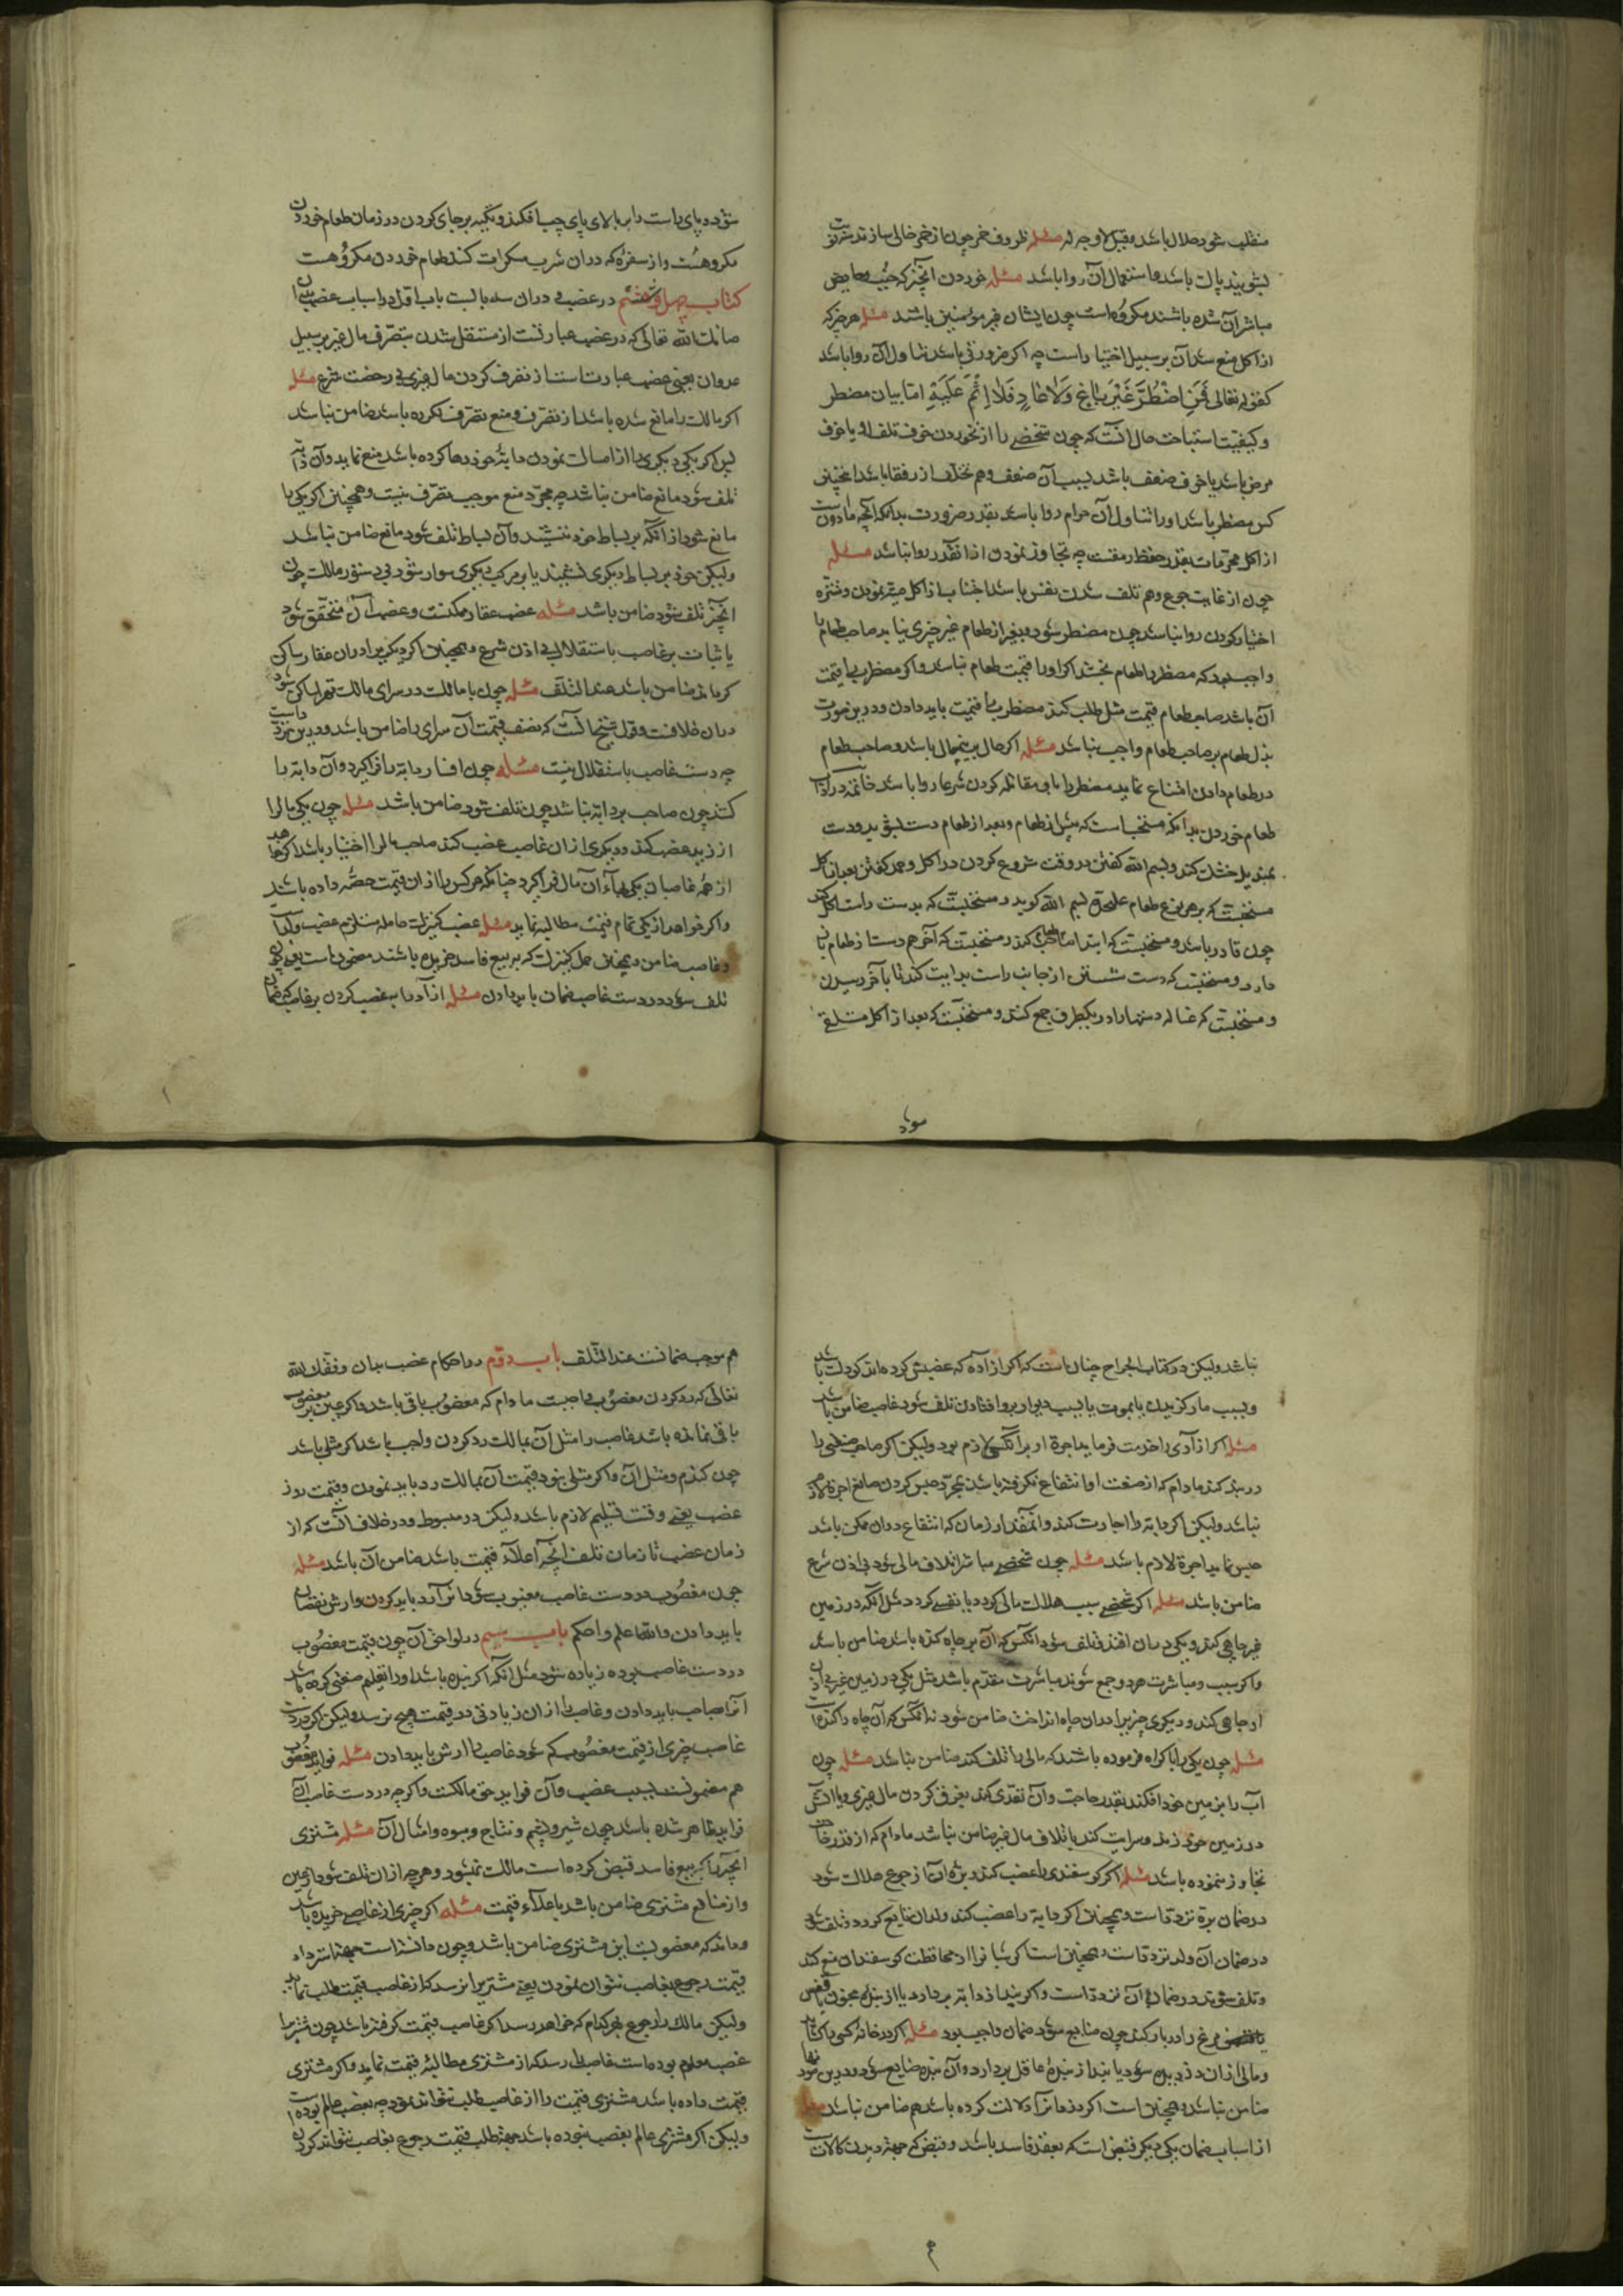 منقلب شود حلال باشد و قیل لا وجه له مسئله ظروف خمر چون از خمر خالی سازند و
بشویند پاک باشد و استعمال آن روا باشد مسئله خوردن آنچیز که جنب و حایض
مباشر آن شده باشند مکروه است چون ایشان غیر مؤمنین باشند مسئله هر چیز که
از اکل منع شد آن بر سبیل اختیار است چه اگر ضرورتی باشد تناول آن روا باشد
کقوله تعالی فمن اضطر غیر باغ ولا عاد فلا اثم علیه اما بیان مضطر
و کیفیت استباحت حال آنست که چون شخصی را از نخوردن خوف تلف او یا خوف
مرض باشد یا خوف ضعف باشد بسبب آن ضعف وهم تخلف از رفقا باشد اینچنین
کس مضطر باشد او را تناول آن حرام روا باشد بقدر ضرورت بدانکه آنچه ماذونست
از اکل محرمات بقدر حفظ رمقست چه تجاوز نمودن از آنقدر روا نباشد مسئله
چون از غایت جوع وهم تلف شدن نفس باشد اجتناب از اکل میته نمودن و تنزه
اختیار کردن روا نباشد چون مضطر شود و بغیر از طعام غیر چیزی نیابد صاحب طعام را
واجب بود که مضطر را طعام بخشد اگر او را قیمت طعام نباشد و اگر مضطر را قیمت
آن باشد صاحب طعام قیمت مثل طلب کند مضطر را قیمت باید دادن و درین صورت
بذل طعام بر صاحب طعام واجب نباشد مسئله اگر حال برینحال باشد و صاحب طعام
در طعام دادن امتناع نماید مضطر را با وی مقاتله کردن شرعا روا باشد خاتمه در آداب
طعام خوردن بدانکه مستحب است که پیش از طعام و بعد از طعام دست بشوید و دست
بمندیل خشک کند و بسم الله گفتن در وقت شروع کردن در اکل و حمد گفتن بعد از اکل
مستحبست که بر هر نوع طعام علیحده بسم الله گوید و مستحبست که بدست راست اکل کند
چون قادر باشد و مستحبست که ابتدا صاحب کند و مستحبست که آخر هم دست از طعام باز
دارد و مستحبست که دست شستن از جانب راست بدایت کند تا بآخر رسیدن
و مستحبست که غساله دستها را در یکظرف جمع کنند و مستحبست که بعد از اکل مستلقی
شود
شود و پای راست را بر بالای پای چپ افکند و تکیه بر جای کردن در زمان طعام خوردن
مکروهست و از سفره که در آن شرب مسکرات کنند طعام خوردن مکروهست
کتاب چهل و هشتم در غصب و در آن سه بابست باب اول در اسباب غصب
صانک الله تعالی که غصب عبارتست از مستقل شدن بتصرف مال غیر بر سبیل
عدوان یعنی غصب عبارتست از تصرف کردن مال غیری بی رخصت شرع مسئله
اگر مالک را مانع شده باشد از تصرف و منع تصرف نکرده باشد ضامن نباشد
پس اگر یکی دیگری را از امساک نمودن دابه خود رها کرده باشد منع نماید و آن دابه
تلف شود مانع ضامن نباشد چه مجرد منع موجب تصرف نیست و همچنین اگر یکی را
مانع شود از آنکه بر بساط خود ننشیند و آن بساط تلف شود مانع ضامن نباشد
ولیکن خود بر بساط دیگری نشیند یا بر مرکب دیگری سوار شود بی دستور مالک چون
آنچیز تلف شود ضامن باشد مسئله غصب عقار ممکنست و غصب آن متحقق شود
باثبات ید غاصب باستقلال بی اذن شرع و همچنین اگر دیگری را در آن عقار ساکن
گرداند ضامن باشد عند التلف مسئله چون با مالک در سرای مالک قهرا ساکن شود
در آن خلافست و قول شیخ آنست که نصف قیمت آن سرای را ضامن باشد و درین تردد است
چه دست غاصب باستقلال نیست مسئله چون افسار دابه را فرا گیرد و آن دابه را
کشد چون صاحب بر دابه نباشد چون تلف شود ضامن باشد مسئله چون یکی مال را
از زید غصب کند و دیگری از آن غاصب غصب کند صاحب مال را اختیار باشد اگر خواهد
از همه غاصبان یکی بهاء آن مال فرا گیرد چنانکه هر کس را از آن قیمت حصه داده باشد
و اگر خواهد از یکی تمام قیمت مطالبه نماید مسئله غصب کنیزک حامله مستلزم غصب ولد است
و غاصب ضامن و همچنین حمل کنیزک که به بیع فاسد خریده باشند مضمون است یعنی چون
تلف شود در دست غاصب ضمان باید دادن مسئله آزاد را بغصب کردن بر غاصب ضمان
نباشد ولیکن در کتاب الجراح چنان است که اگر آزاده که غصبش کرده‌اند کودک باشد
و بسبب مار گزیدن یا بموت یا بسبب دیوار برو افتادن تلف شود غاصب ضامن باشد
مسئله اگر آزادی را خدمت فرماید اجرة او بر آنکس لازم بود ولیکن اگر صاحب صنعتی را
در بند کند مادام که از صنعت او انتفاع نگرفته باشد بمجرد حبس کردن صانع اجرة لازم
نباشد ولیکن اگر دابه را اجارت کند و آنمقدار زمان که انتفاع در آن ممکن باشد
حبس نماید اجرة لازم باشد مسئله چون شخصی مباشر اتلاف مالی شود بی اذن شرع
ضامن باشد مسئله اگر شخصی سبب هلاک مالی گردد یا نفسی گردد مثل آنکه در زمین
غیر چاهی کند و یکی در آن افتد و تلف شود آنکس که آن بر چاه کنده باشد ضامن باشد
و اگر سبب و مباشرت هر دو جمع شوند مباشرت مقدم باشد مثل یکی در زمین غیر بی اذن
او چاهی کند و دیگری چیزی را در آن چاه انداخت ضامن شود نه آنکس که آن چاه را کنده است
مسئله چون یکی را باکراه فرموده باشند که مالی را تلف کند ضامن نباشد مسئله چون
آب را بزمین خود افکند بقدر حاجت و آن تعدی کند بغرق کردن مال غیری و یا آتش
در زمین خود زند و سرایت کند باتلاف مال غیر ضامن نباشد مادام که از قدر حاجت
تجاوز ننموده باشد مسئله اگر گوسفندی را غصب کند و بره آن از جوع هلاک شود
در ضمان بره تردد است و همچنین اگر دابه را غصب کند و لد آن ضایع گردد و تلف شود
در ضمان آن ولد تردد است و همچنین است اگر شبانرا از محافظت گوسفندان منع کند
و تلف شوند در ضمان آن تردد است و اگر بند از دابه بردارد یا از بنده مجنون یا قفس
مرغ را در باز کند چون ضایع شود ضمان واجب بود مسئله اگر در خانه کسی را گشاید
و مالی از آن دزدیده شود یا بند از بنده عاقل بردارد و آن بنده ضایع شود درین صورتها
ضامن نباشد و همچنین است اگر دزد را بر آن دلالت کرده باشد هم ضامن نباشد مسئله
از اسباب ضمان یکی دیگر قبض است که بعقد فاسد باشد و قبض که جهت دیدن کالاست
هم
هم موجب ضمانست عند التلف باب دوم در احکام غصب بدان وفقک الله
تعالی که رد کردن مغصوب واجبست مادام که مغصوب باقی باشد و اگر عین مغصوب
باقی نمانده باشد غاصب را مثل آن بمالک رد کردن واجب باشد اگر مثلی باشد
چون گندم و مثل آن و اگر مثلی نبود قیمت آن بمالک رد باید نمودن و قیمت روز
غصب یعنی وقت تسلیم لازم باشد ولیکن در مبسوط و در خلاف آنست که از
زمان غصب تا زمان تلف آنچه اعلاء قیمت باشد ضامن آن باشد مسئله
چون مغصوب در دست غاصب معیوب شود آنرا رد باید کردن و ارش نقصان
باید دادن والله اعلم و احکم باب سیم در لواحق آن چون قیمت مغصوب
در دست غاصب بوده زیاده شود مثل آنکه اگر بنده باشد او را تعلیم صنعتی کرده باشد
آنرا بصاحب باید دادن و غاصب را از آن زیادتی در قیمت هیچ نرسد ولیکن اگر در دست
غاصب چیزی از قیمت مغصوب کم شود غاصب را ارش باید دادن مسئله فواید مغصوب
هم مضمونست بسبب غصب و آن فواید حق مالکست و اگر چه در دست غاصب آن
فواید ظاهر شده باشد چون شیر و پشم و نتاج و میوه و امثال آن مسئله مشتری
آنچه را که به بیع فاسد قبض کرده است مالک نمیشود و هر چه از آن تلف شود از عین
و از منافع مشتری ضامن باشد باعلاء قیمت مسئله اگر چیزی از غاصبی خریده باشد
و داند که مغصوبست این مشتری ضامن باشد و چون دانسته است جهة استرداد
قیمت رجوع بغاصب نتوان نمودن یعنی مشتری را نرسد که از غاصب قیمت طلب نماید
ولیکن مالک را رجوع بهر کدام که خواهد رسد اگر غاصب قیمت گرفته باشد چون مشتری را
غصب معلوم بوده است غاصب را رسد که از مشتری مطالبه قیمت نماید و اگر مشتری
قیمت داده باشد مشتری قیمت را از غاصب طلب نتواند نمود چه بغصب عالم بوده است
ولیکن اگر مشتری عالم بغصب نبوده باشد جهة طلب قیمت رجوع بغاصب تواند کردن